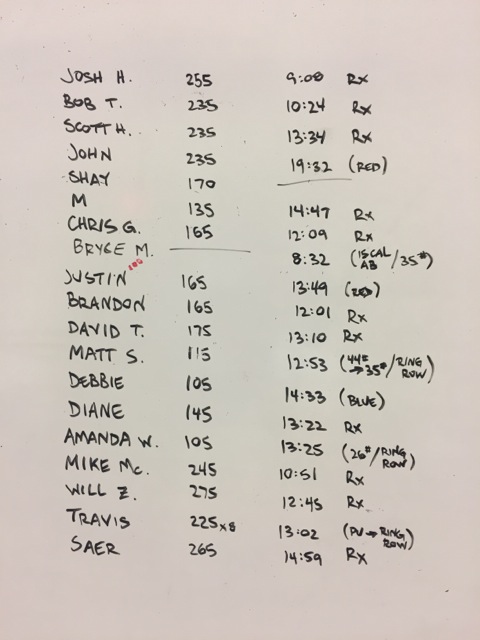 JOSH H. 255 Rx
BOB T. 235 10:24 Rx
SCOTT H. 235 13:34 Rx
JOHN 235 19:32 (RED)
SHAY 170 —
M 135 14:47 Rx
CHRIS G. 165 12:09 Rx
BRYCE M. — 8:32 (15CAL AB/35#)
JUSTIN 165 13:49
BRANDON 165 12:01 Rx
DAVID T. 175 13:10 Rx
MATT S. 115 12:53 (44# → 35#/RING ROW)
DEBBIE 105 14:33 (BLUE)
DIANE 145 13:22 Rx
AMANDA W. 105 13:25 (26#/RING ROW)
MIKE MC. 245 10:51 Rx
WILL Z. 275 12:45 Rx
TRAVIS 225x8 13:02 (PU → RING ROW)
SAER 265 14:59 Rx